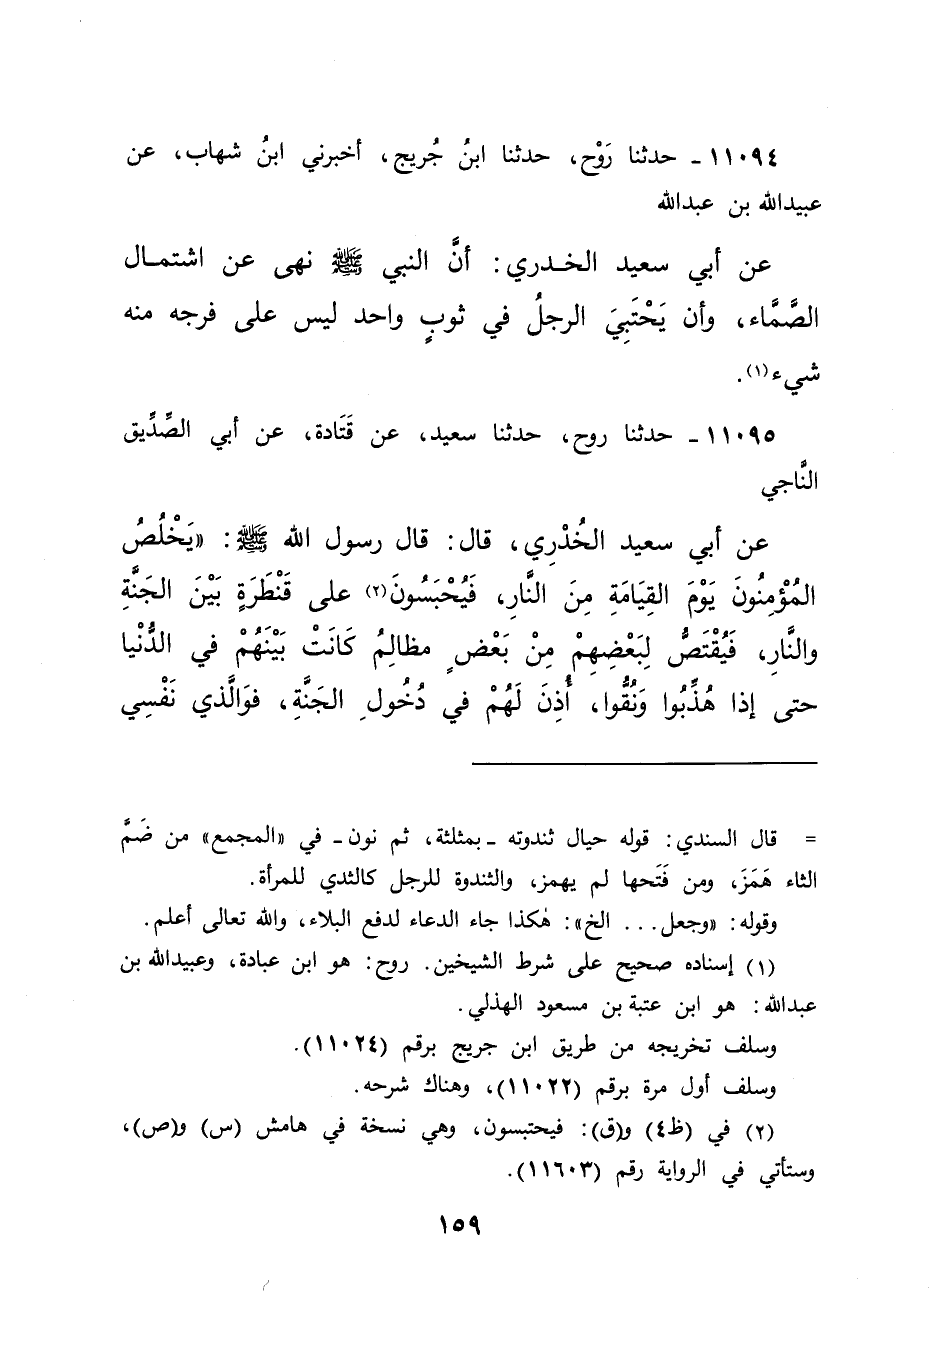 ١١٠٩٤ ـ حدثنا رَوْح، حدثنا ابنُ جُريج، أخبرني ابنُ شهاب، عن
عبيدالله بن عبدالله
عن أبي سعيد الخـدري: أنَّ النبي ﷺ نهى عن اشتمـال
الصَّمَّاء، وأن يَحْتَبِيَ الرجلُ في ثوبٍ واحد ليس على فرجه منه
شيء(١).
١١٠٩٥ ـ حدثنا روح، حدثنا سعيد، عن قَتَادة، عن أبي الصِّدِّيق
النَّاجي
عن أبي سعيد الخُدْرِي، قال: قال رسول الله ﷺ: «يَخْلُصُ
المُؤْمِنُونَ يَوْمَ القِيَامَةِ مِنَ النَّارِ، فَيُحْبَسُونَ(٢) على قَنْطَرَةٍ بَيْنَ الجَنَّةِ
والنَّارِ، فَيُقْتَصُّ لِبَعْضِهِمْ مِنْ بَعْضٍ مظالِمُ كَانَتْ بَيْنَهُمْ في الدُّنْيا
حتى إذا هُذِّبُوا وَنُقُّوا، أُذِنَ لَهُمْ في دُخُولِ الجَنَّةِ، فوَالَّذي نَفْسِي
= قال السندي: قوله حيال ثندوته ـ بمثلثة، ثم نون ـ في «المجمع» من ضَمَّ
الثاء هَمَزَ، ومن فَتَحها لم يهمز، والثندوة للرجل كالثدي للمرأة.
وقوله: «وجعل... الخ»: هٰكذا جاء الدعاء لدفع البلاء، والله تعالى أعلم.
(١) إسناده صحيح على شرط الشيخين. روح: هو ابن عبادة، وعبيدالله بن
عبدالله: هو ابن عتبة بن مسعود الهذلي.
وسلف تخريجه من طريق ابن جريج برقم (١١٠٢٤).
وسلف أول مرة برقم (١١٠٢٢)، وهناك شرحه.
(٢) في (ظ٤) و(ق): فيحتبسون، وهي نسخة في هامش (س) و(ص)،
وستأتي في الرواية رقم (١١٦٠٣).
١٥٩